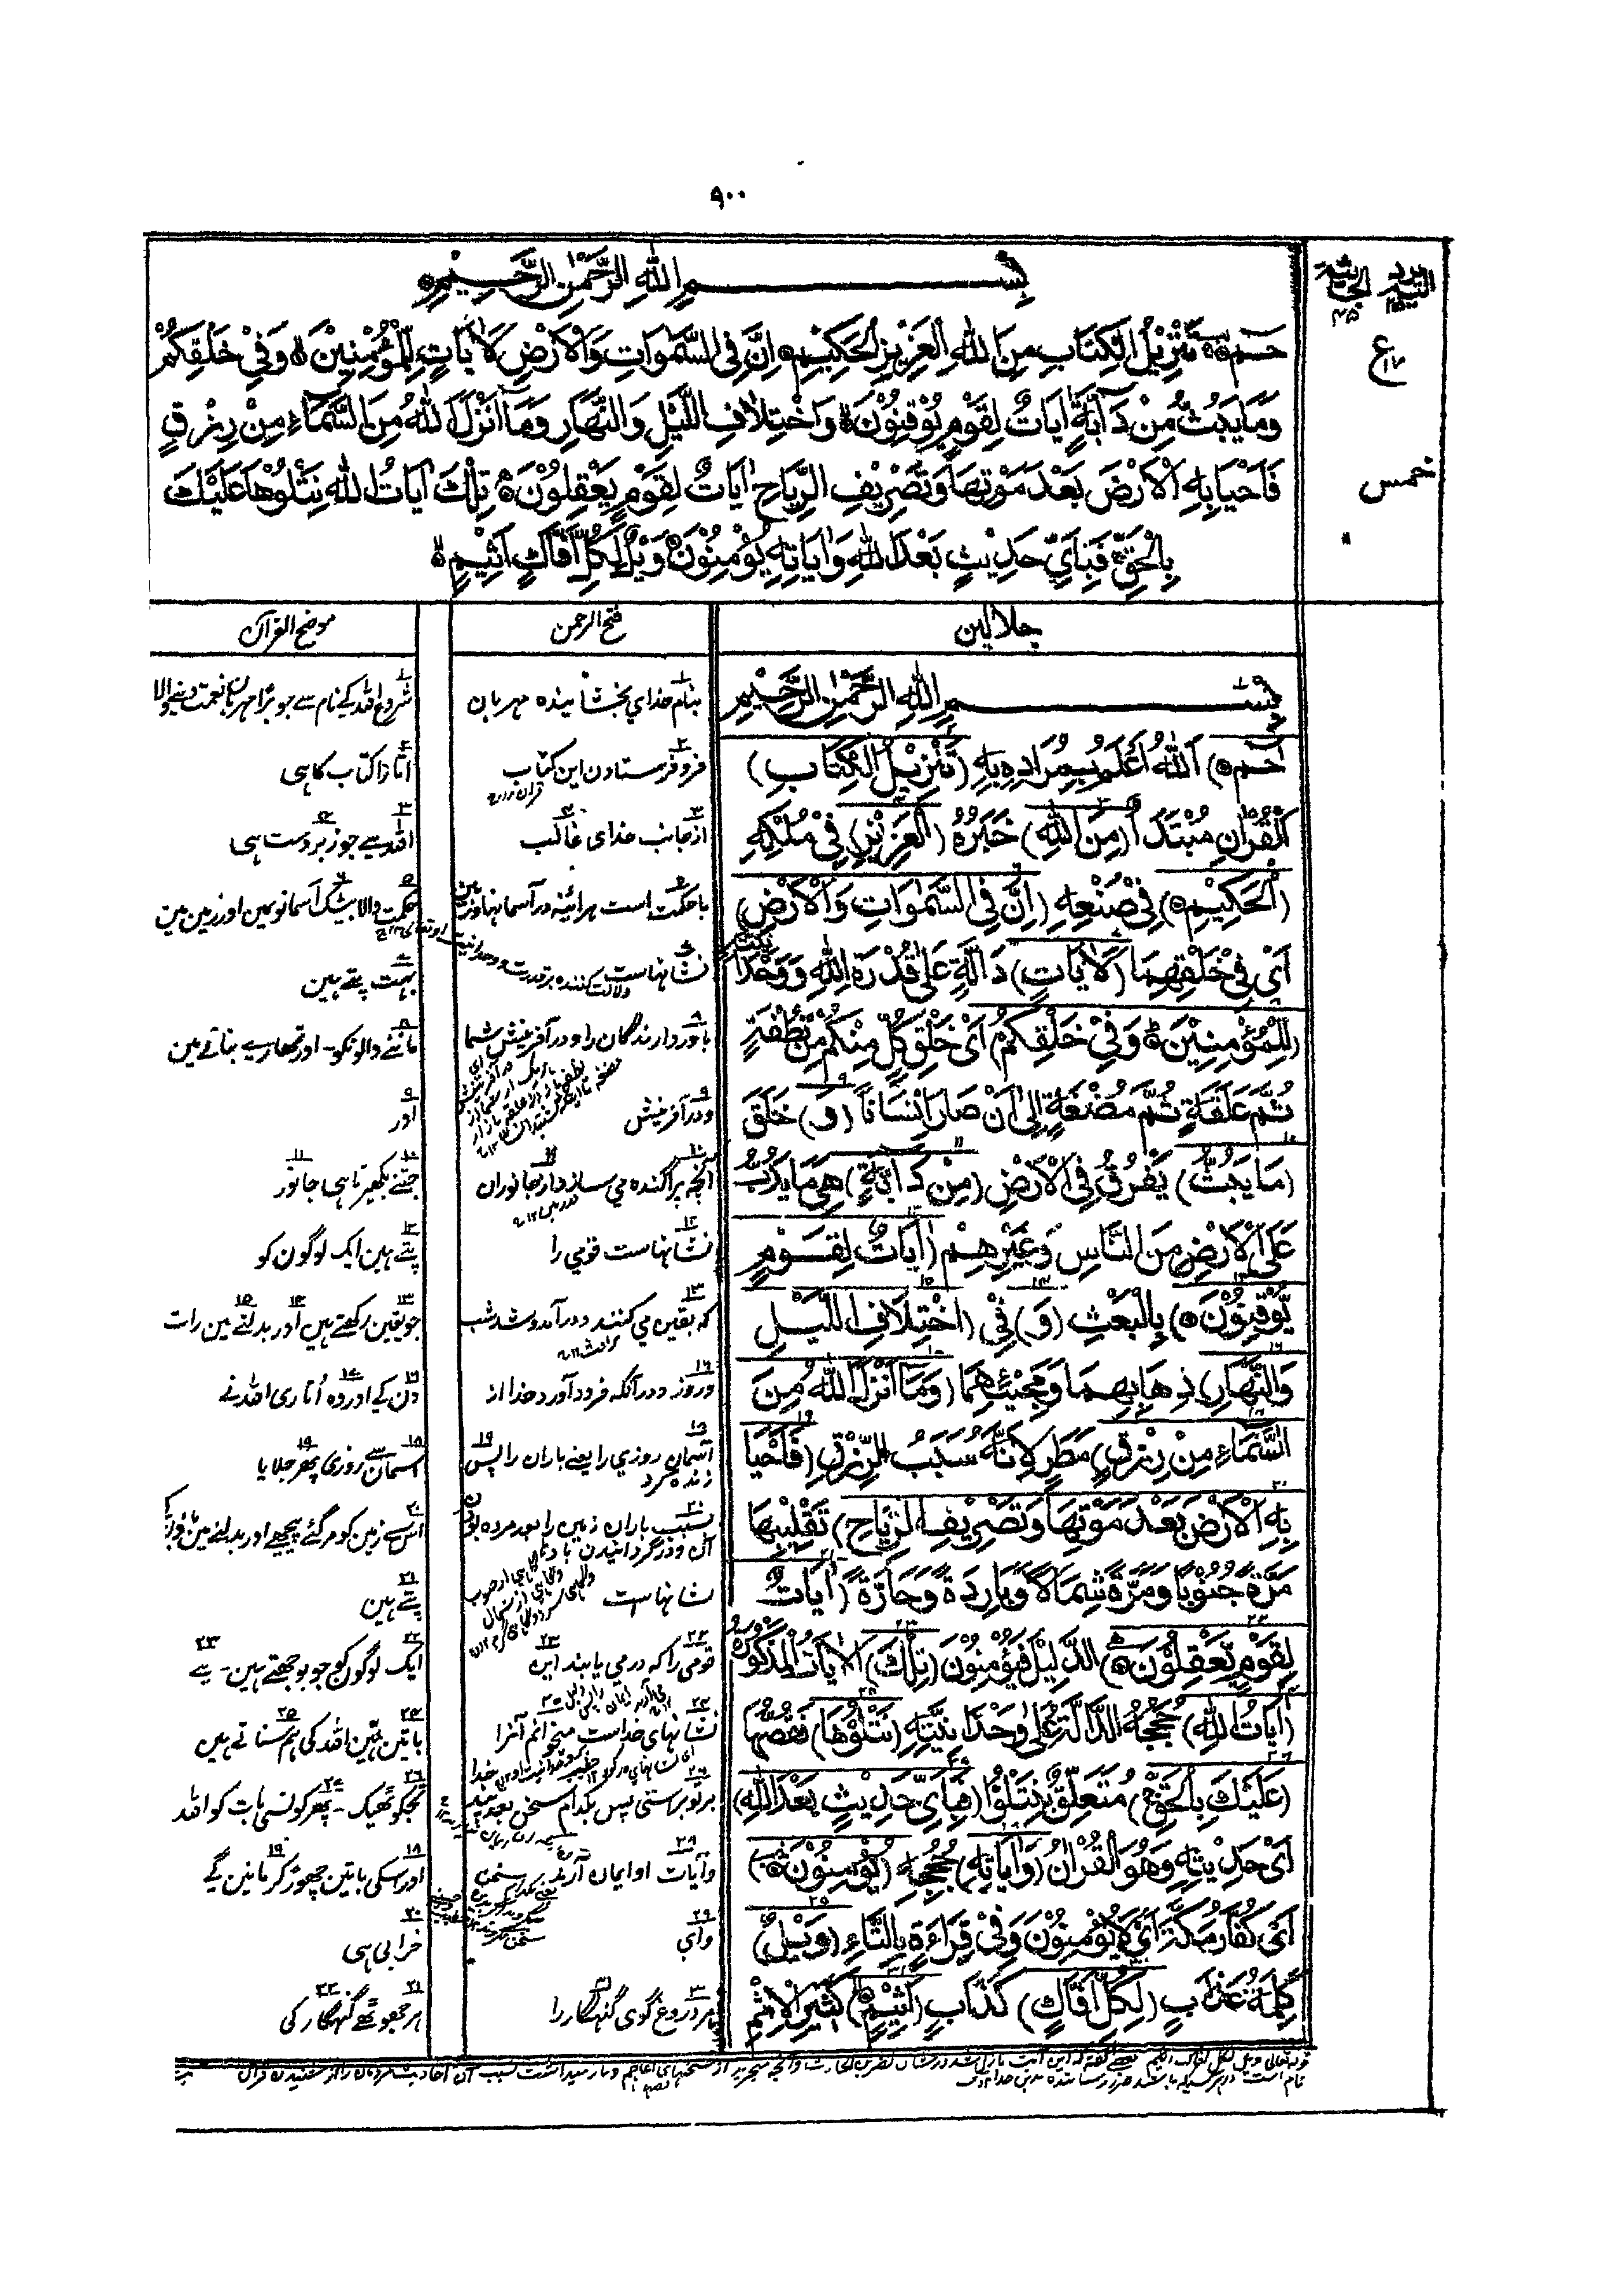 ٩٠٠
اليه يرد
٢٥
الجاثية
٤٥
ع
١٧
خمس
بِسْمِ اللهِ الرَّحْمٰنِ الرَّحِيْمِ
حٰمٓ تَنْزِيْلُ الْكِتَابِ مِنَ اللهِ الْعَزِيْزِ الْحَكِيْمِ اِنَّ فِى السَّمٰوَاتِ وَالْاَرْضِ لَاٰيَاتٍ لِلْمُؤْمِنِيْنَ وَفِيْ خَلْقِكُمْ
وَمَا يَبُثُّ مِنْ دَآبَّةٍ اٰيَاتٌ لِقَوْمٍ يُوْقِنُوْنَ وَاخْتِلَافِ اللَّيْلِ وَالنَّهَارِ وَمَآ اَنْزَلَ اللهُ مِنَ السَّمَآءِ مِنْ رِزْقٍ
فَاَحْيَا بِهِ الْاَرْضَ بَعْدَ مَوْتِهَا وَتَصْرِيْفِ الرِّيَاحِ اٰيَاتٌ لِقَوْمٍ يَعْقِلُوْنَ تِلْكَ اٰيَاتُ اللهِ نَتْلُوْهَا عَلَيْكَ
بِالْحَقِّ فَبِاَيِّ حَدِيْثٍ بَعْدَ اللهِ وَاٰيَاتِهِ يُؤْمِنُوْنَ وَيْلٌ لِكُلِّ اَفَّاكٍ اَثِيْمٍ
جلالين
بِسْمِ اللهِ الرَّحْمٰنِ الرَّحِيْمِ
(حٰمٓ) اَللهُ اَعْلَمُ بِمُرَادِهِ بِهِ (تَنْزِيْلُ الْكِتَابِ)
الْقُرْاٰنِ مُبْتَدَأٌ (مِنَ اللهِ) خَبَرُهُ (الْعَزِيْزِ) فِيْ مُلْكِهِ
(الْحَكِيْمِ) فِيْ صُنْعِهِ (اِنَّ فِى السَّمٰوَاتِ وَالْاَرْضِ)
اَىْ فِيْ خَلْقِهِمَا (لَاٰيَاتٍ) دَالَّةٍ عَلٰى قُدْرَةِ اللهِ وَوَحْدَانِيَّتِهِ
(لِلْمُؤْمِنِيْنَ وَفِيْ خَلْقِكُمْ) اَىْ خَلْقِ كُلٍّ مِنْكُمْ مِنْ نُطْفَةٍ
ثُمَّ عَلَقَةٍ ثُمَّ مُضْغَةٍ اِلٰى اَنْ صَارَ اِنْسَانًا (وَ) خَلْقِ
(مَا يَبُثُّ) يُفَرِّقُ فِى الْاَرْضِ (مِنْ دَآبَّةٍ) هِىَ مَا يَدُبُّ
عَلَى الْاَرْضِ مِنَ النَّاسِ وَغَيْرِهِمْ (اٰيَاتٌ لِقَوْمٍ
يُّوْقِنُوْنَ) بِالْبَعْثِ (وَ) فِيْ (اخْتِلَافِ اللَّيْلِ
وَالنَّهَارِ) ذِهَابِهِمَا وَمَجِيْئِهِمَا (وَمَا اَنْزَلَ اللهُ مِنَ
السَّمَآءِ مِنْ رِزْقٍ) مَطَرٍ لِاَنَّهُ سَبَبُ الرِّزْقِ (فَاَحْيَا
بِهِ الْاَرْضَ بَعْدَ مَوْتِهَا وَتَصْرِيْفِ الرِّيَاحِ) تَقْلِيْبِهَا
مَرَّةً جَنُوْبًا وَمَرَّةً شَمَالًا وَبَارِدَةً وَحَارَّةً (اٰيَاتٌ
لِقَوْمٍ يَّعْقِلُوْنَ) الدَّلِيْلَ فَيُؤْمِنُوْنَ (تِلْكَ) الْاٰيَاتُ الْمَذْكُوْرَةُ
(اٰيَاتُ اللهِ) حُجَجُهُ الدَّالَّةُ عَلٰى وَحْدَانِيَّتِهِ (نَتْلُوْهَا) نَقُصُّهَا
(عَلَيْكَ بِالْحَقِّ) مُتَعَلِّقٌ بِنَتْلُوْا (فَبِاَيِّ حَدِيْثٍ بَعْدَ اللهِ)
اَىْ حَدِيْثِهِ وَهُوَ الْقُرْاٰنُ (وَاٰيَاتِهِ) حُجَجِهِ (يُؤْمِنُوْنَ)
اَىْ كُفَّارُ مَكَّةَ اَىْ لَا يُؤْمِنُوْنَ وَفِيْ قِرَاءَةٍ بِالتَّاءِ (وَيْلٌ)
كَلِمَةُ عَذَابٍ (لِكُلِّ اَفَّاكٍ) كَذَّابٍ (اَثِيْمٍ) كَثِيْرِ الْاِثْمِ
فتح الرحمن
بنام خداي بخشاينده مهربان
فرو فرستادن اين كتاب
از جانب خداى غالب
با حكمت است هرآئينه در آسمانها و زمين
نشانهاست
باور دارندگان را و در آفرينش شما
و در آفرينش
آنچه پراگنده مي سازد از جانوران
نشانهاست قومي را
كه يقين مي كنند و در آمد و شد شب
و روز و در آنكه فرود آورد خدا از
آسمان روزي را يعنے باران را پس
زنده كرد
بسبب باران زمين را بعد مرده بودن
آن و در گردانيدن بادها
نشانهاست
قومى را كه در مي يابند اين
نشانهاى خداست ميخوانيم آنرا
بر تو براستى پس بكدام سخن بعد
وآيات او ايمان آرند
واى
هر دروغ گوى گنهگار را
موضح القرآن
شروع الله كے نام سے جو بڑا مهربان نعمت دينے والا
اتارا كتاب كا هى
الله سے جو زبردست هى
حكمت والا بيشك آسمانو مين اور زمين مين
بهت پتے هين
ماننے والونكو ۔ اور تمهارے بنانے مين
اور
جتنے بكهيرتا هى جانور
پتے هين ايك لوگون كو
جو يقين ركهتے هين اور بدلنے مين رات
دن كے اور وه اُتارى الله نے
آسمان سے روزى پهر جلايا
اس سے زمين كو مر گئے پيچهے اور بدلنے مين
پتے هين
ايك لوگون كو جو بوجهتے هين ۔ يے
باتين هين الله كى هم سناتے هين
تجكو ٹهيك ۔ پهر كونسى بات كو الله
اور اسكى باتين چهوڑ كر مانين گے
خرابى هى
هر جهوٹے گنهگار كى